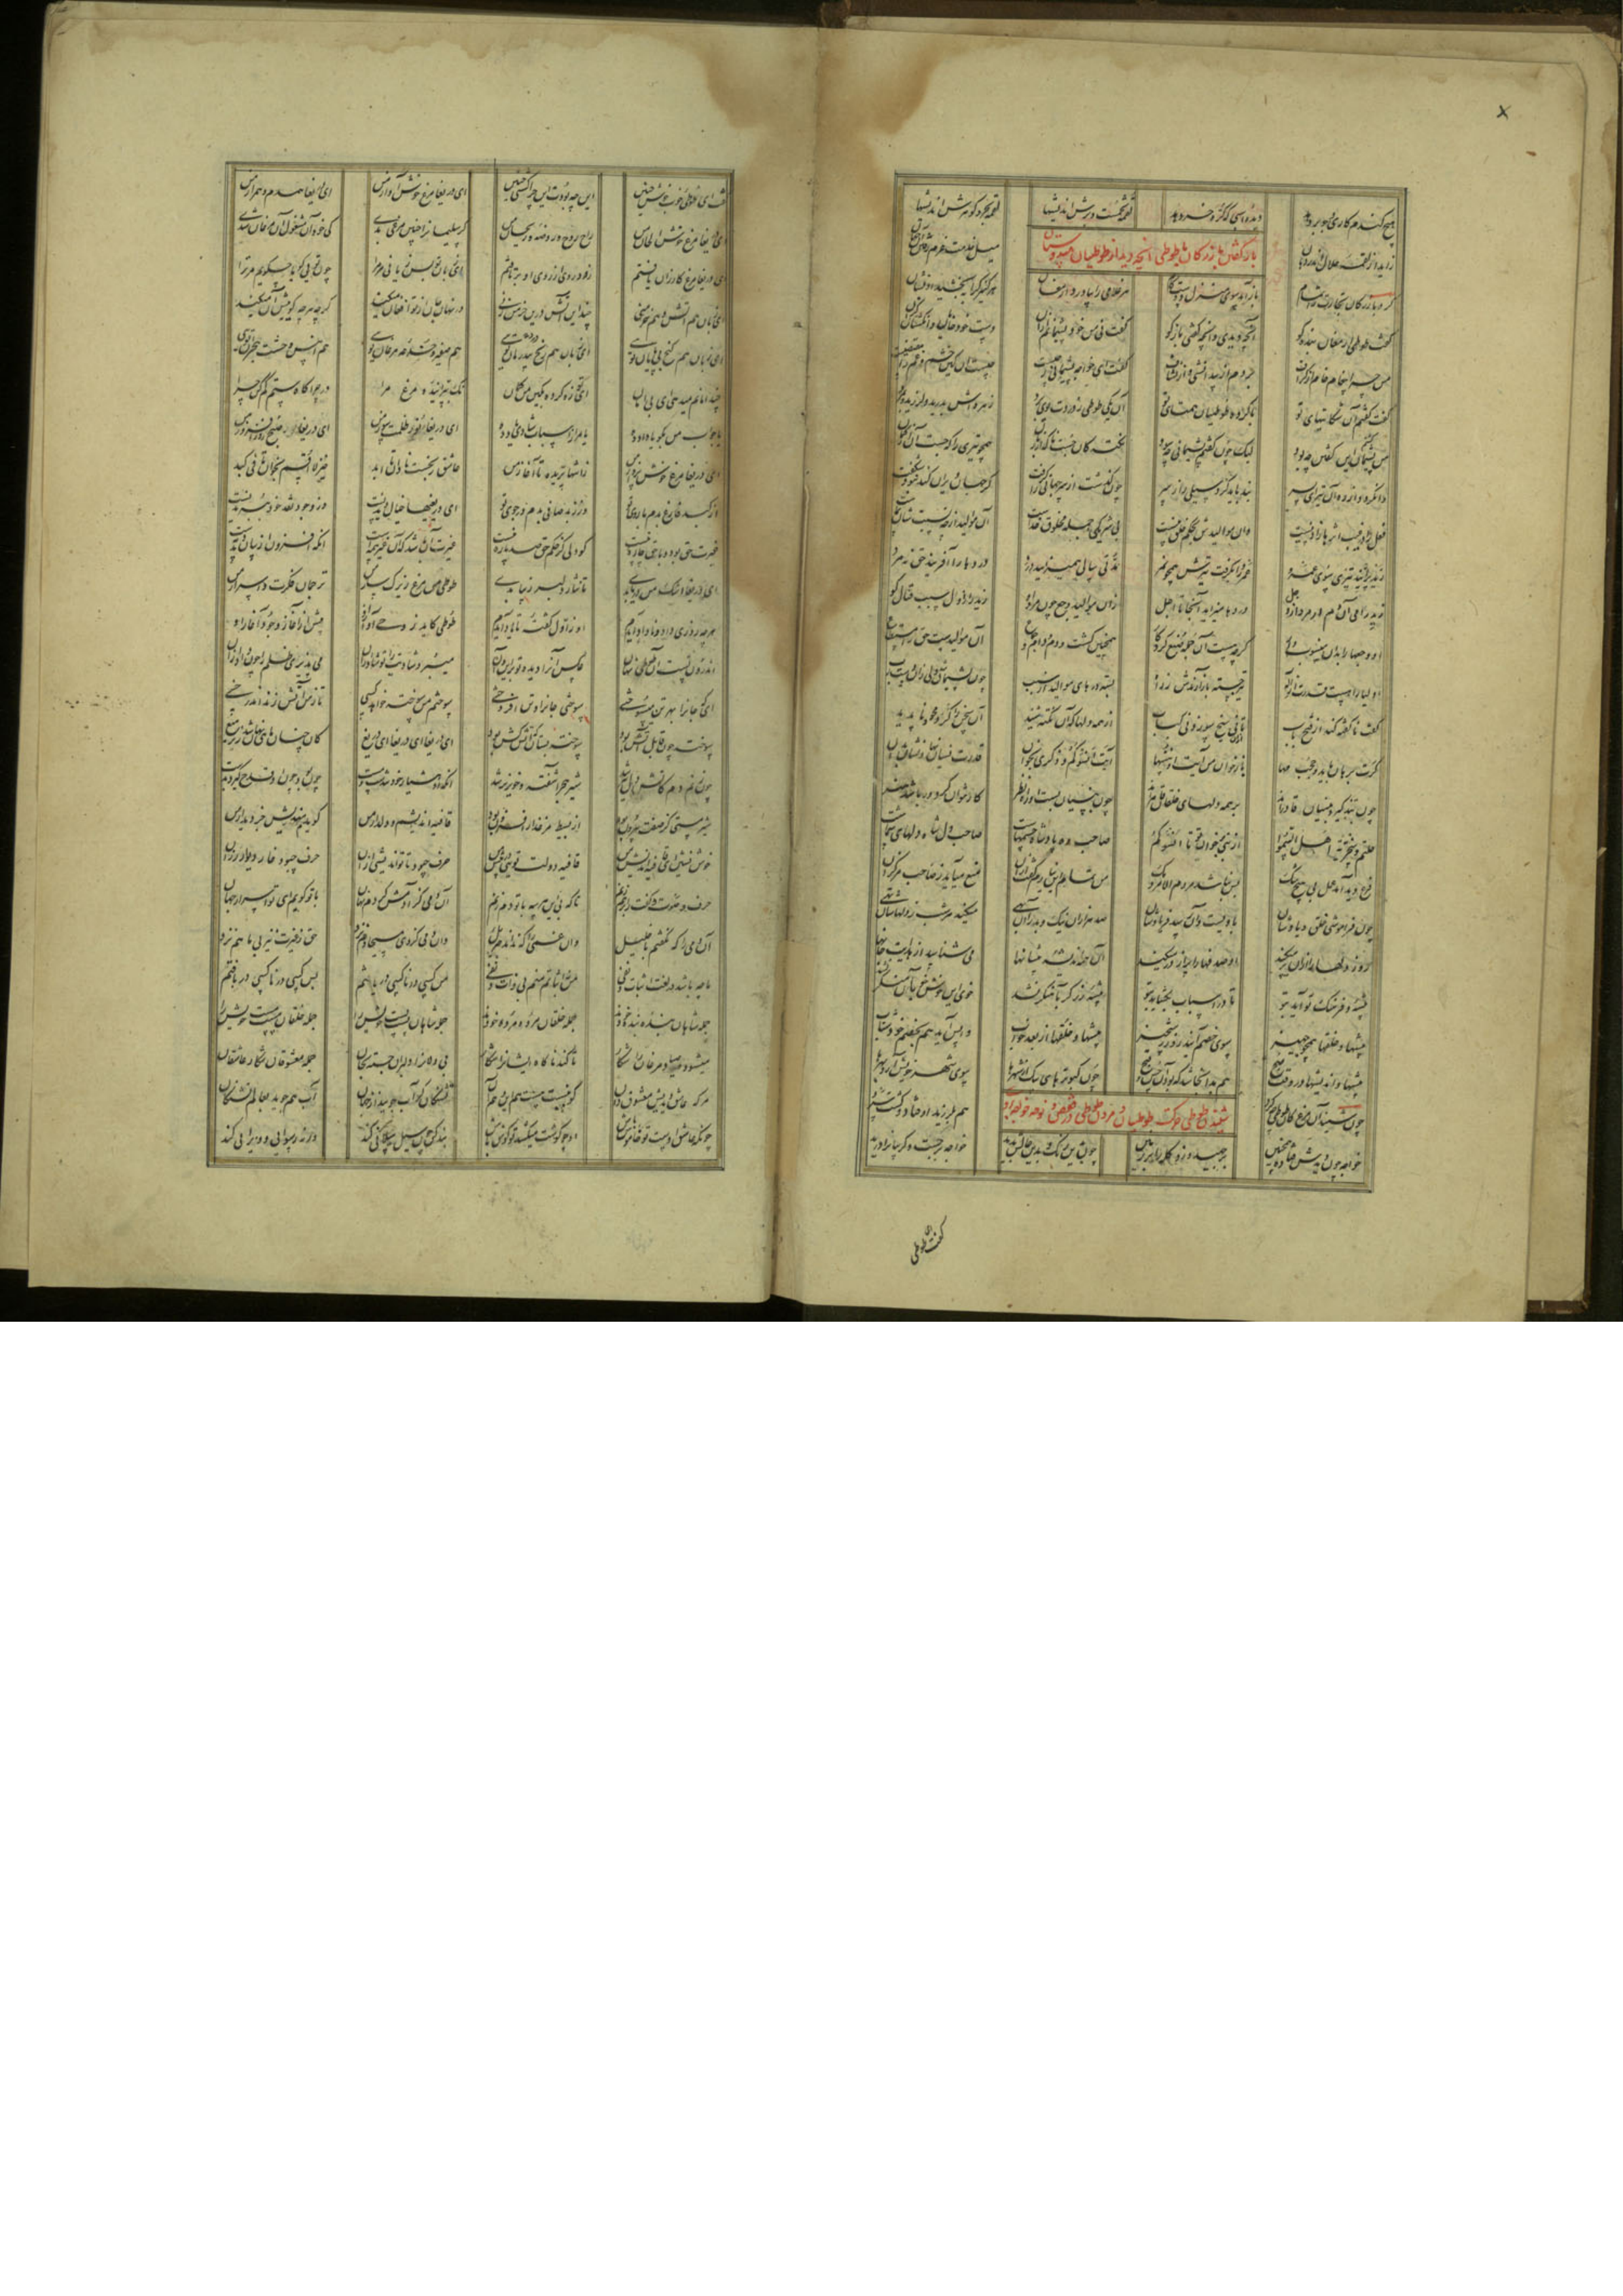 هیچ گندم کاری و جو بر دهد دیدهٔ اسبی که کره خر دهد لقمه تخمست و برش اندیشها لقمه بحر و گوهرش اندیشها
زاید از لقمه حلال اندر دهان میل خدمت عزم رفتن آن جهان
بازگفتن بازرگان با طوطی آنچه دید از طوطیان هندوستان
کرد بازرگان تجارت را تمام باز آمد سوی منزل دوستکام هر غلامی را بیاورد ارمغان هر کنیزک را ببخشید او نشان
گفت طوطی ارمغان بنده کو آنچه دیدی و آنچه گفتی بازگو گفت نی من خود پشیمانم ازان دست خود خایان و انگشتان گزان
من چرا پیغام خام از گزاف بردم از بیدانشی و از نشاف گفت ای خواجه پشیمانی ز چیست چیست آن کین خشم و غم را مقتضیست
گفت گفتم آن شکایتهای تو با گروه طوطیان همتای تو آن یکی طوطی ز دردت بوی برد زهره اش بدرید و لرزید و بمرد
من پشیمان گشتم این گفتن چه بود لیک چون گفتم پشیمانی چه سود نکته کان جست ناگه از زبان همچو تیری دان که جست آن از کمان
وا نگردد از ره آن تیر ای پسر بند باید کرد سیلی را ز سر چون گذشت از سر جهانی را گرفت گر جهان ویران کند نبود شگفت
فعل را در غیب اثرها زادنیست وان موالیدش بحکم خلق نیست بی شریکی جمله مخلوق خداست آن موالید ارچه نسبتشان بماست
زید پرانید تیری سوی عمرو عمرو را بگرفت تیرش همچو نمر مدتی سالی همیزایید درد دردها را آفریند حق نه مرد
زید رامی آن دم ار مرد از وجل دردها میزاید آنجا تا اجل زان موالید وجع چون مرد او زید را ز اول سبب قتال گو
آن وجعها را بدو منسوب دار گرچه هست آن جمله صنع کردگار همچنین کشت و دم و دام و جماع آن موالیدست حق را مستطاع
اولیا را هست قدرت از اله تیر جسته باز آرندش ز راه بسته درهای موالید از سبب چون پشیمان شد ولی زان دست رب
گفته ناگفته کند از فتح باب تا ازان نی سیخ سوزد نی کباب از همه دلها که آن نکته شنید آن سخن را کرد محو و ناپدید
گرت برهان باید و حجت مها باز خوان من آیة او ننسها آیت انسوکم ذکری بخوان قدرت نسیان نهادنشان بدان
چون بتذکیر و بنسیان قادرند بر همه دلهای خلقان قاهرند چون بنسیان بست او راه نظر کار نتوان کرد ور باشد هنر
خلتم سخریة اهل السمو از نبی بخوان تا انسوکم صاحب ده پادشاه جسمهاست صاحب دل شاه دلهای شماست
فرع دید آمد عمل بی هیچ شک پس نباشد مردم الا مردمک من تمام این نیارم گفت ازان منع میآید ز صاحب مرکزان
چون فراموشی خلق و یادشان با ویست و آن رسد فریادشان صد هزاران نیک و بد را آن بهی میکند هر شب ز دلهاشان تهی
روز دلها را ازان پر میکند آن صدفها را پر از در میکند آن همه اندیشه پیشانها می شناسد از هدایت جانها
پیشه و فرهنگ تو آید بتو تا در اسباب بگشاید بتو پیشه زرگر بآهنگر نشد خوی این خوش خو بآن منکر نشد
پیشها و خلقها همچو جهیز سوی خصم آیند روز رستخیز پیشها و خلقها از بعد خواب واپس آید هم بخصم خود شتاب
پیشها و اندیشها در وقت صبح هم بدانجا شد که بود آن حسن و قبح چون کبوترهای پیک از شهرها سوی شهر خویش آرد بهرها
چون شنید آن مرغ کان طوطی چه کرد هم بلرزید اوفتاد و گشت سرد
شنیدن طوطی حرکت طوطیان و مردن طوطی در قفص و نوحه خواجه بر او
خواجه چون دیدش فتاده همچنین برجهید و زد کله را بر زمین چون بدین رنگ و بدین حالش بدید خواجه برجست و گریبان را درید
گفت ای طوطی
گفت ای طوطی خوب خوش حنین این چه بودت این چرا گشتی چنین ای دریغا مرغ خوش آواز من ای دریغا همدم و همراز من
ای دریغا مرغ خوش الحان من راح روح و روضه و ریحان من گر سلیمان را چنین مرغی بدی کی خود او مشغول آن مرغان شدی
ای دریغا مرغ کارزان یافتم زود روی از روی او برتافتم ای زبان تو بس زیانی مر مرا چون تویی گویا چه گویم مر ترا
ای زبان هم آتش و هم خرمنی چند این آتش درین خرمن زنی در نهان جان از تو افغان میکند گرچه هرچه گوییش آن میکند
ای زبان هم گنج بی پایان تویی ای زبان هم رنج بی درمان تویی هم صفیر و خدعه مرغان تویی هم انیس وحشت هجران تویی
چند امانم میدهی ای بی امان ای تو زه کرده بکین من کمان نک بپرانیده مرغ مرا در چراگاه ستم کم کن چرا
یا جواب من بگو یا داد ده یا مرا ز اسباب شادی یاد ده ای دریغا نور ظلمت سوز من ای دریغا صبح روز افروز من
ای دریغا مرغ خوش پرواز من ز انتها پریده تا آغاز من عاشق رنجست نادان تا ابد خیز لا اقسم بخوان تا فی کبد
از کبد فارغ بدم با روی تو وز زبد صافی بدم در جوی تو ای دریغاها خیال دیدنست وز وجود نقد خود ببریدنست
غیرت حق بود و با حق چاره نیست کو دلی کز حکم حق صد پاره نیست غیرت آن باشد که آن غیر همه است آنکه افزون از بیان و دمدمه است
ای دریغا اشک من دریا بدی تا نثار دلبر زیبا بدی طوطی من مرغ زیرک سار من ترجمان فکرت و اسرار من
هرچه روزی داد و ناداد آیدم او ز اول گفته تا یاد آیدم طوطی کاید ز وحی آواز او پیش از آغاز وجود آغاز او
اندرون تست آن طوطی نهان عکس آنرا دیده تو بر این و آن میبرد شادیت را تو شاد ازو می پذیری ظلم را چون داد ازو
ای که جان را بهر تن میسوختی سوختی جان را و تن افروختی سوختم من سوخته خواهد کسی تا ز من آتش زند اندر خسی
سوخته چون قابل آتش بود سوخته بستان که آتش کش بود ای دریغا ای دریغا ای دریغ کان چنان ماهی نهان شد زیر میغ
چون زنم دم کاتش دل تیز شد شیر هجر آشفته و خونریز شد آنکه او هشیار خود تندست و مست چون بود چون او قدح گیرد بدست
شیر مستی کز صفت بیرون بود از بسیط مرغزار افزون بود قافیه اندیشم و دلدار من گویدم مندیش جز دیدار من
خوش نشین ای قافیه اندیش من قافیه دولت تویی در پیش من حرف چبود تا تو اندیشی ازان حرف چبود خار دیوار رزان
حرف و صوت و گفت را بر هم زنم تا که بی این هر سه با تو دم زنم آن دمی کز آدمش کردم نهان با تو گویم ای تو اسرار جهان
آن دمی را که نگفتم با خلیل وان غمی را که نداند جبرئیل وان دمی کز وی مسیحا دم نزد حق ز غیرت نیز بی ما هم نزد
ما چه باشد در لغت اثبات و نفی من نه اثباتم منم بی ذات و نفی من کسی در ناکسی دریافتم بس کسی در ناکسی درباختم
جمله شاهان بنده بنده خودند جمله خلقان مرده مرده خودند جمله شاهان پست پست خویش را جمله خلقان مست مست خویش را
میشود صیاد مرغان را شکار تا کند ناگاه ایشان را شکار بی دلان را دلبران جسته بجان جمله معشوقان شکار عاشقان
هر که عاشق دیدیش معشوق دان کو بنسبت هست هم این و هم آن تشنگان گر آب جویند از جهان آب هم جوید بعالم تشنگان
چونکه عاشق اوست تو خاموش باش او چو گوشت میکشد تو گوش باش بند کن چون سیل سیلانی کند ورنه رسوایی و ویرانی کند